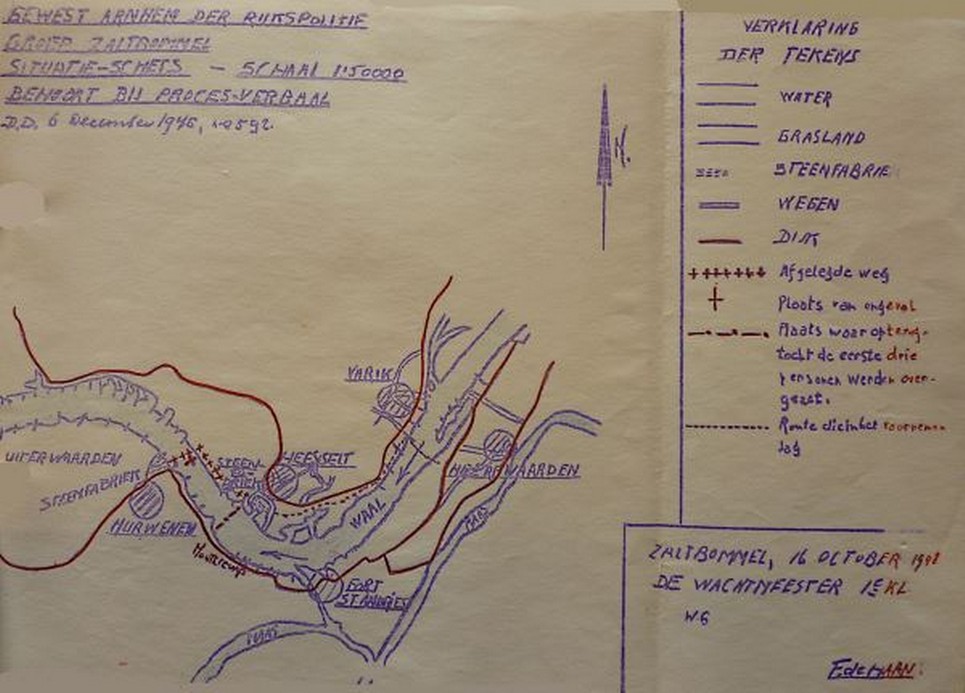 GEWEST ARNHEM DER RIJKSPOLITIE
GROEP ZALTBOMMEL
SITUATIE-SCHETS - SCHAAL 1:50000
BEHOORT BIJ PROCES-VERBAAL
D.D. 6 December 1946, no 592.
N.
VERKLARING
DER TEKENS
WATER
GRASLAND
STEENFABRIE
WEGEN
DIJK
Afgelegde weg
Plaats van ongeval
Plaats waar op terug-
tocht de eerste drie
personen werden over-
gezet.
Route die in het voornemen
lag
VARIK
HEESSELT
HEEREWAARDEN
STEEN-
UITERWAARDEN
STEENFABRIEK
HURWENEN
WAAL
MAAS
FORT
ST ANDRIES
MAAS
ZALTBOMMEL, 16 OCTOBER
DE WACHTMEESTER 1E KL
WG
E de HAAN.